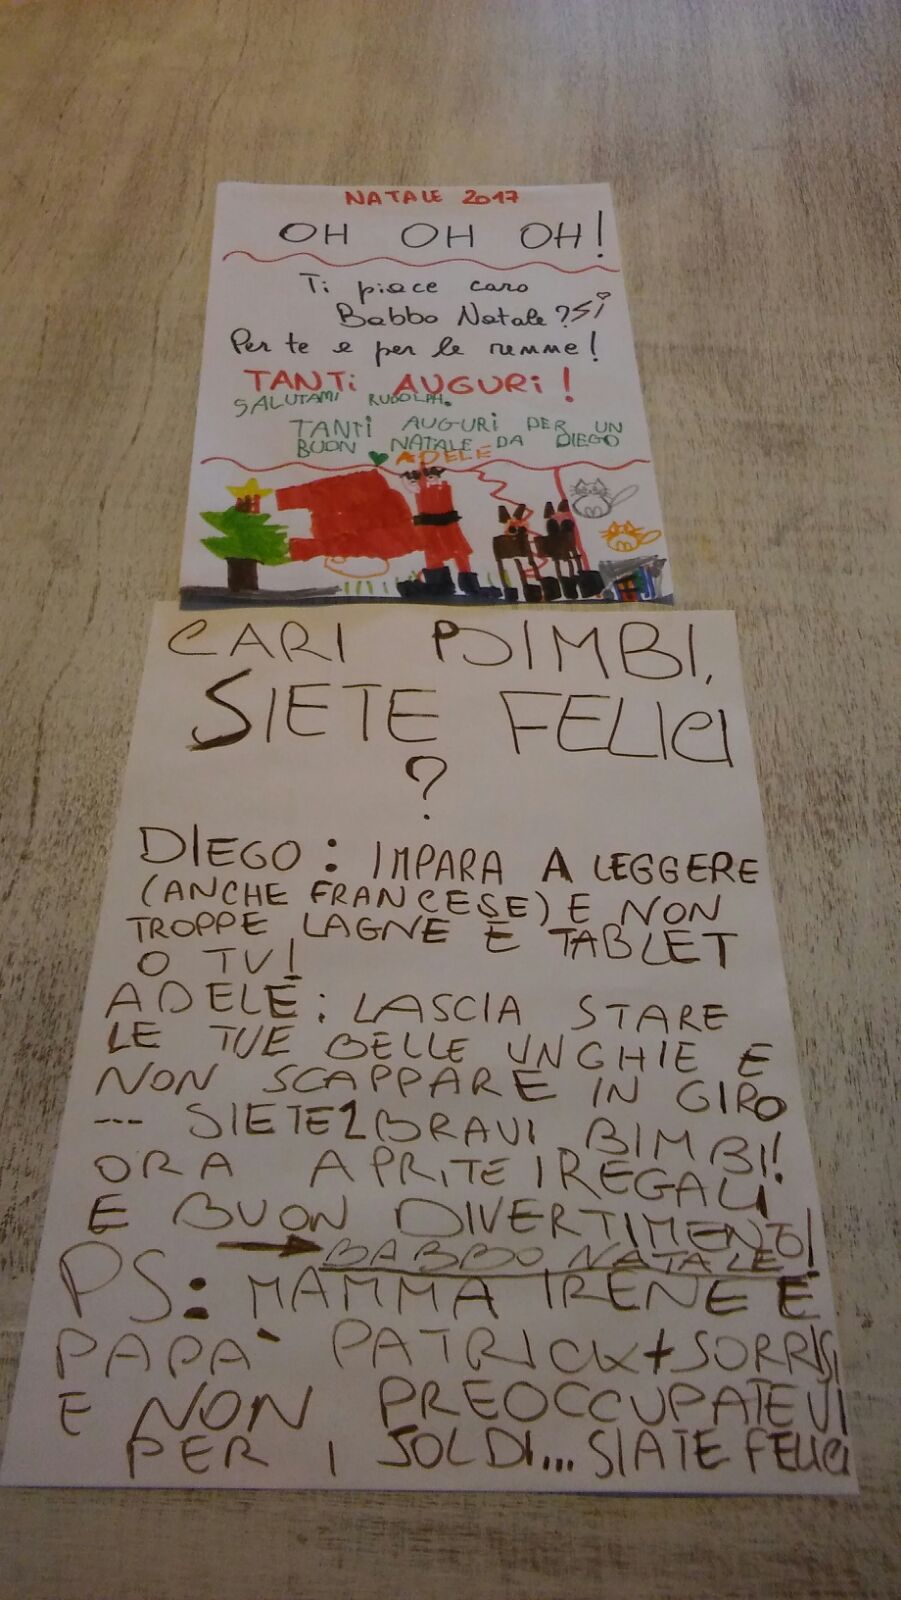 NATALE 2017
OH OH OH!
Ti piace caro
Babbo Natale? Sì
Per te e per le renne!
TANTi AUGURi!
SALUTAMI RUDOLPH.
TANTi AUGURi PER UN
BUON NATALE DA DIEGO
ADELE
CARI BIMBI,
SIETE FELICI
?
DIEGO: IMPARA A LEGGERE
(ANCHE FRANCESE) E NON
TROPPE LAGNE E TABLET
O TV!
ADELE: LASCIA STARE
LE TUE BELLE UNGHIE E
NON SCAPPARE IN GIRO
--- SIETE 2 BRAVI BIMBI!
ORA APRITE I REGALI
E BUON DIVERTIMENTO!
BABBO NATALE
PS: MAMMA IRENE E
PAPA' PATRICK + SORRISI
E NON PREOCCUPATEVI
PER I SOLDI... SIATE FELICI